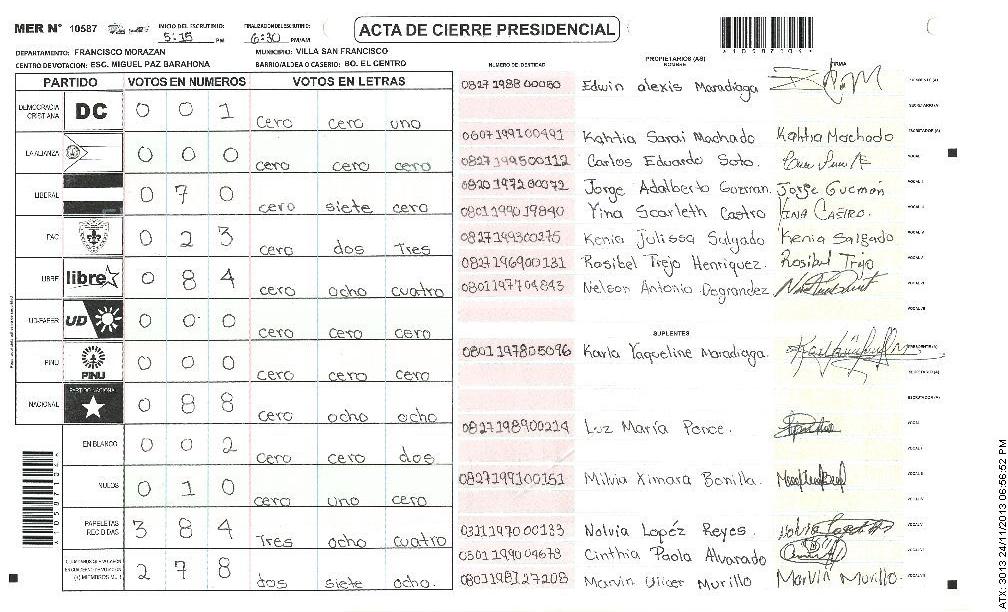 MER N° 10587
INICIO DEL ESCRUTINIO: 5:15 PM
FINALIZACION DEL ESCRUTINIO: 6:30 PM/AM
ACTA DE CIERRE PRESIDENCIAL
DEPARTAMENTO: FRANCISCO MORAZAN
MUNICIPIO: VILLA SAN FRANCISCO
CENTRO DE VOTACION: ESC. MIGUEL PAZ BARAHONA
BARRIO/ALDEA O CASERIO: BO. EL CENTRO
PARTIDO VOTOS EN NUMEROS VOTOS EN LETRAS
DEMOCRACIA CRISTIANA DC 0 0 1 cero cero uno
LA ALIANZA 0 0 0 cero cero cero
LIBERAL 0 7 0 cero siete cero
PAC 0 2 3 cero dos Tres
LIBRE libre 0 8 4 cero ocho cuatro
UD-FAPER UD 0 0 0 cero cero cero
PINU PINU 0 0 0 cero cero cero
NACIONAL PARTIDO NACIONAL 0 8 8 cero ocho ocho
EN BLANCO 0 0 2 cero cero dos
NULOS 0 1 0 cero uno cero
PAPELETAS RECIBIDAS 3 8 4 Tres ocho cuatro
2 7 8 dos siete ocho.
NUMERO DE IDENTIDAD
PROPIETARIOS (AS)
NOMBRE
FIRMA
0827198800050 Edwin alexis Maradiaga
0607199100491 Kahtia Sarai Machado Kahtia Machado
0827199500112 Carlos Eduardo Soto.
0820197200072 Jorge Adalberto Guzman. Jorge Guzmán
0801199019840 Yina Scarleth Castro Yina Castro.
0827199300275 Kenia Julissa Salgado Kenia Salgado
0827196900131 Rosibel Trejo Henriquez. Rosibel Trejo
0801197704843 Nelson Antonio Dograndez
SUPLENTES
0801197805096 Karla Yaqueline Maradiaga.
0827198900214 Luz María Ponce.
0827199100151 Milvia Ximara Bonilla.
0311197000133 Nolvia Lopéz Reyes.
0501199004678 Cinthia Paola Alvarado
0801198127208 Marvin Ulicer Murillo Marvin Murillo.
ATX-3013 24/11/2013 06:56:52 PM